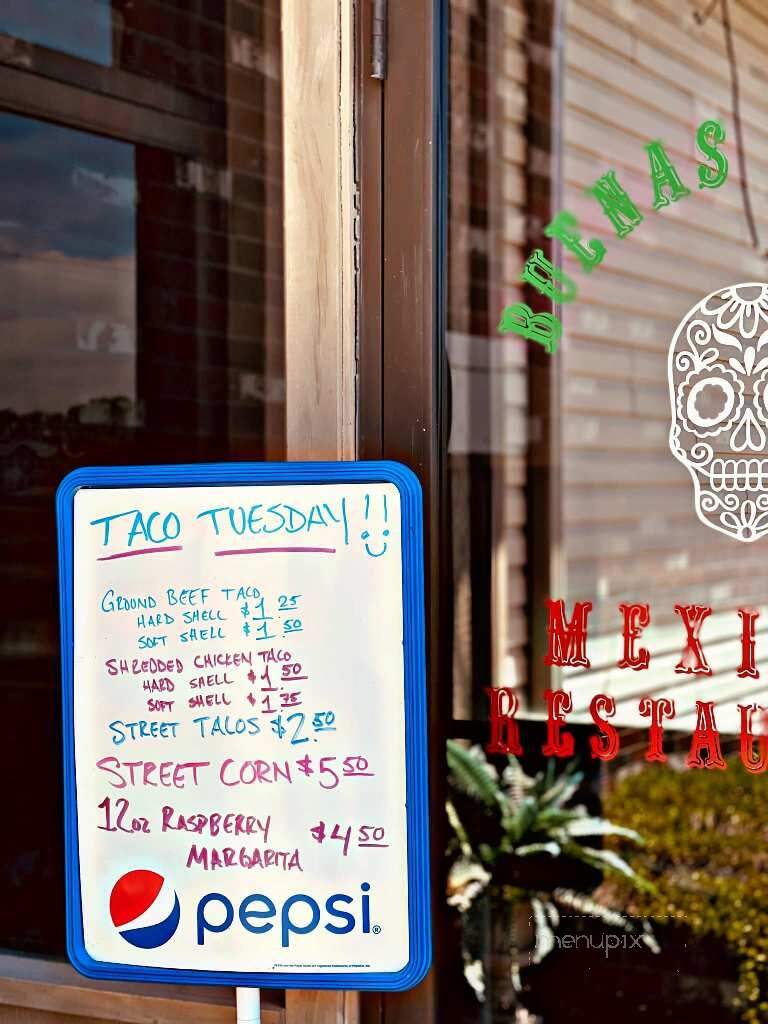 BUENAS
TACO TUESDAY!!
GROUND BEEF TACO
HARD SHELL $1.25
SOFT SHELL $1.50
SHREDDED CHICKEN TACO
HARD SHELL $1.50
SOFT SHELL $1.75
STREET TACOS $2.50
STREET CORN $5 50
12oz RASPBERRY
MARGARITA $4 50
pepsi®
MEXI
RESTAU
menupix